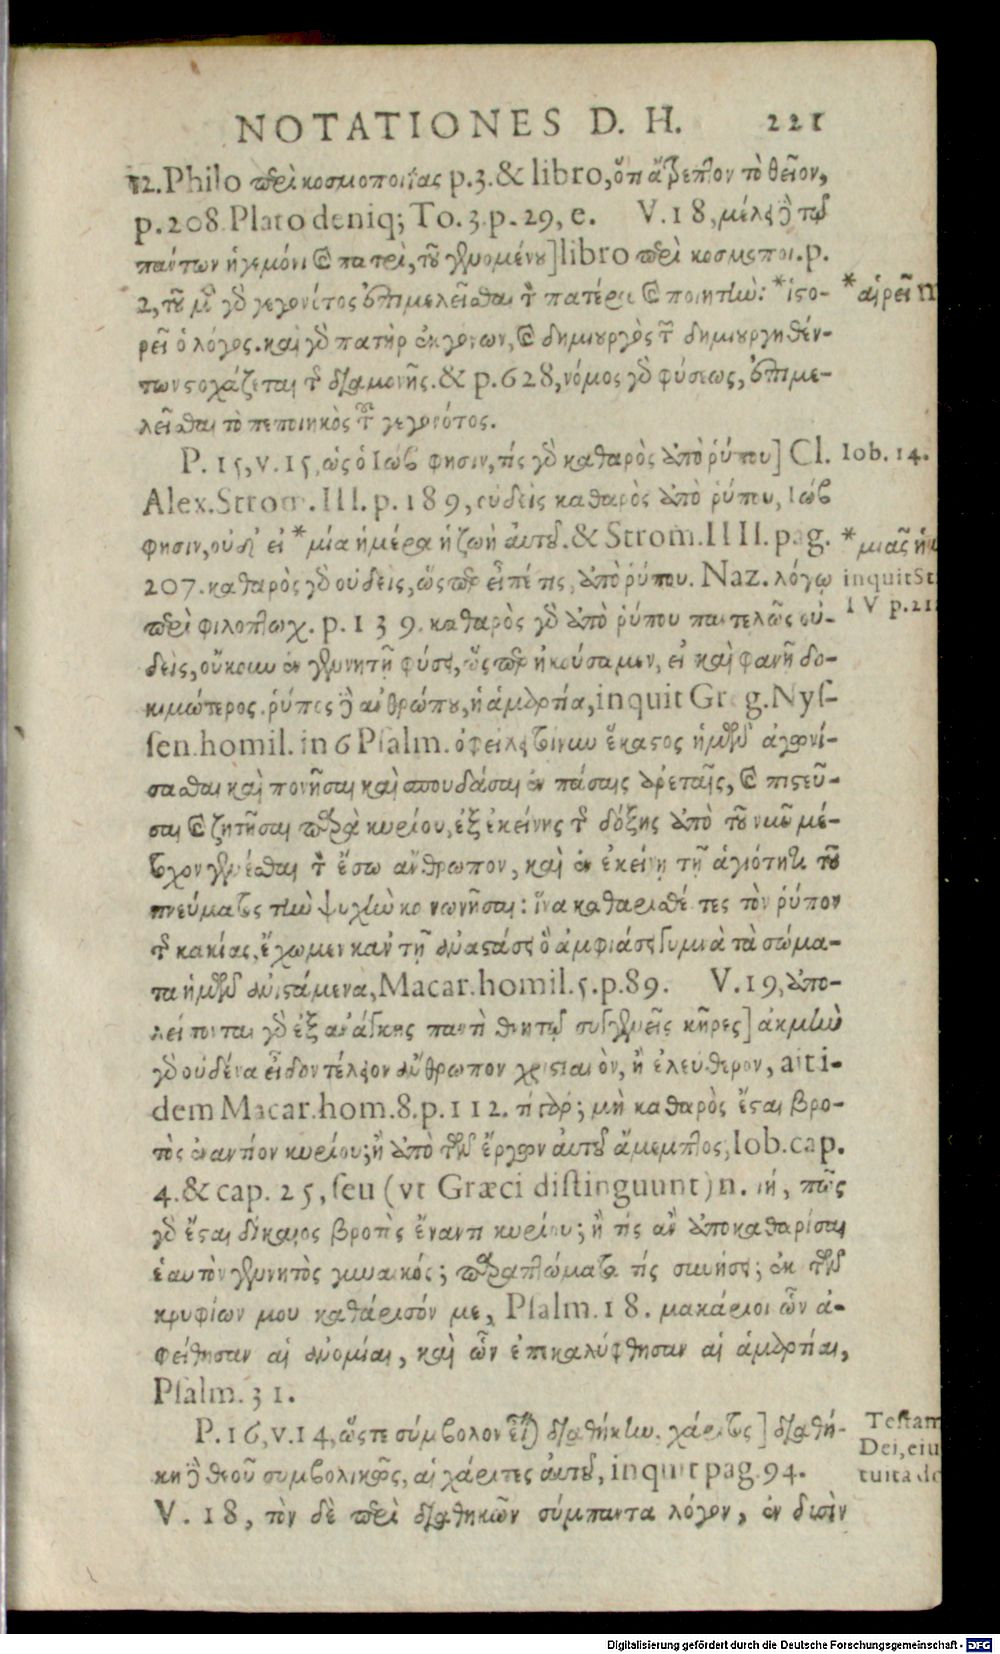 NOTATIONES D. H. 221
12. Philo περὶ κοσμοποιΐας p.3. & libro, ὅτι ἄτρεπτον τὸ θεῖον,
p.208. Plato deniq; To.3.p.29, e. V.18, μέλει δὲ τῷ
πάντων ἡγεμόνι καὶ πατρὶ, τοῦ γενομένου] libro περὶ κοσμοποι. p.
2, τοῦ μὲν γὰρ γεγονότος ἐπιμελεῖσθαι τὸν πατέρα καὶ ποιητὴν: *ἱστο-
ρεῖ ὁ λόγος. καὶ γὰρ πατὴρ ἐκγόνων, καὶ δημιουργὸς τῶν δημιουργηθέν-
των στοχάζεται τῆς διαμονῆς. & p.628, νόμος γὰρ φύσεως, ἐπιμε-
λεῖσθαι τὸ πεποιηκὸς τοῦ γεγονότος.
P. 15, v. 15, ὡς ὁ Ἰώβ φησιν, τίς γὰρ καθαρὸς ἀπὸ ῥύπου] Cl.
Alex. Strom. III. p. 189, οὐδεὶς καθαρὸς ἀπὸ ῥύπου, Ἰώβ
φησιν, οὐδ' εἰ *μία ἡμέρα ἡ ζωὴ αὐτοῦ. & Strom. IIII. pag.
207. καθαρὸς γὰρ οὐδεὶς, ὥσπερ εἶπέ τις, ἀπὸ ῥύπου. Naz. λόγῳ
περὶ φιλοπτωχ. p. 139. καθαρὸς γὰρ ἀπὸ ῥύπου παντελῶς οὐ-
δεὶς, οὔκουν ἐν γεννητῇ φύσει, ὥσπερ ἠκούσαμεν, εἰ καὶ φανῇ δο-
κιμώτερος. ῥύπος δὲ ἀνθρώπου, ἡ ἁμαρτία, inquit Greg. Nyſ-
ſen. homil. in 6 Pſalm. ὀφείλει τοίνυν ἕκαστος ἡμῶν ἀγωνί-
σασθαι καὶ πονῆσαι καὶ σπουδάσαι ἐν πάσαις ἀρεταῖς, καὶ πιστεῦ-
σαι καὶ ζητῆσαι παρὰ κυρίου, ἐξ ἐκείνης τῆς δόξης ἀπὸ τοῦ νῦν μέ-
τοχον γενέσθαι τὸν ἔσω ἄνθρωπον, καὶ ἐν ἐκείνῃ τῇ ἁγιότητι τοῦ
πνεύματος τὴν ψυχὴν κοινωνῆσαι: ἵνα καθαρισθέντες τὸν ῥύπον
τῆς κακίας, ἔχωμεν κἂν τῇ ἀναστάσει ὃ ἀμφιάσει γυμνὰ τὰ σώμα-
τα ἡμῶν ἀνιστάμενα, Macar. homil. 5. p. 89. V. 19, ἀπο-
λείπονται γὰρ ἐξ ἀνάγκης παντὶ θνητῷ συγγενεῖς κῆρες] ἀκμὴν
γὰρ οὐδένα εἶδον τέλειον ἄνθρωπον χριστιανὸν, ἢ ἐλεύθερον, ait i-
dem Macar. hom. 8. p. 112. τί γάρ; μὴ καθαρὸς ἔσται βρο-
τὸς ἐναντίον κυρίου; ἢ ἀπὸ τῶν ἔργων αὐτοῦ ἄμεμπτος, Iob. cap.
4. & cap. 25, ſeu (vt Græci diſtinguunt) n. κή, πῶς
γὰρ ἔσται δίκαιος βροτὸς ἔναντι κυρίου; ἢ τίς ἂν ἀποκαθαρίσαι
ἑαυτὸν γεννητὸς γυναικός; παραπτώματα τίς συνήσει; ἐκ τῶν
κρυφίων μου καθάρισόν με, Pſalm. 18. μακάριοι ὧν ἀ-
φείθησαν αἱ ἀνομίαι, καὶ ὧν ἐπικαλύφθησαν αἱ ἁμαρτίαι,
Pſalm. 31.
P. 16, v. 14, ὥστε σύμβολον εἶναι διαθήκην χάριτος] διαθή-
κη δὲ θεοῦ συμβολικῶς, αἱ χάριτες αὐτοῦ, inquit pag. 94.
V. 18, τὸν δὲ περὶ διαθηκῶν σύμπαντα λόγον, ἐν δυσὶν
*αἱρεῖ
Iob. 14.
*μιᾶς
inquit St
IV p. 21
Teſtam
Dei, eiu
tuita do
Digitalisierung gefördert durch die Deutsche Forschungsgemeinschaft - DFG